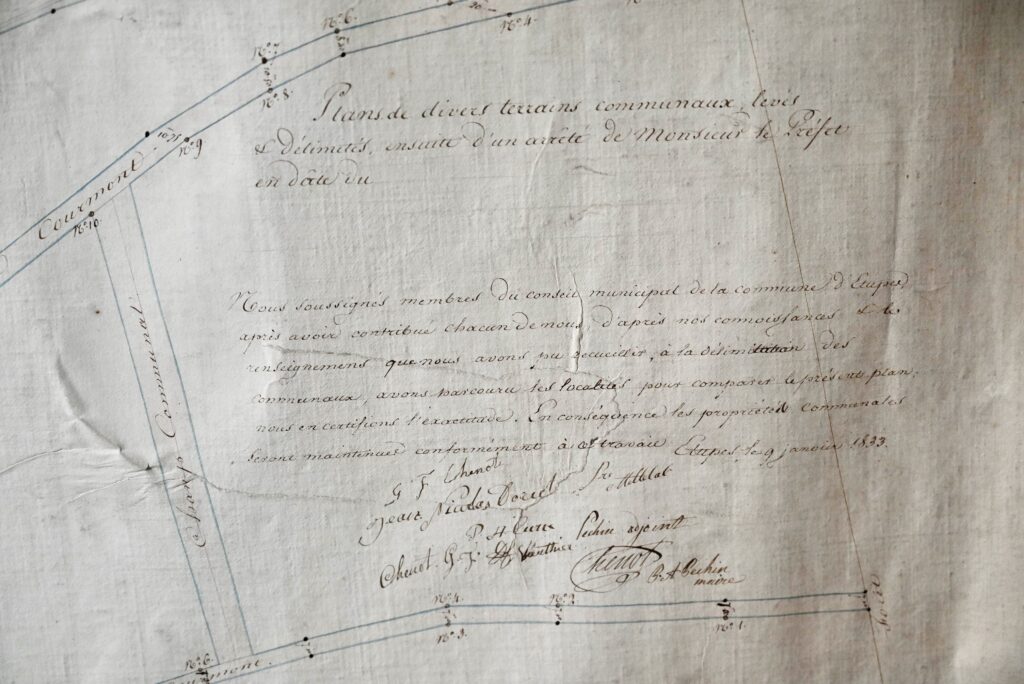 N°. 6.
N°. 4.
N°. 7.
N°. 8.
N°. 9
Courmont.
N°. 10.
Plans de divers terrains communaux, levés
& délimetés, ensuite d'un arrêté de Monsieur le Préfet
en date du
Nous soussignés membres du conseil municipal de la commune d'Etupes,
après avoir contribué chacun de nous, d'après nos connoissances & le
renseignemens que nous avons pu recueillir, à la délimitation des
communaux, avons parcouru les localités pour comparer le présent plan,
nous en certifions l'exactitude. En conséquence les propriétés communales
seront maintenues conformément à ce travail Etupes le 9 janvier 1833
Champ Communal.
G F Chenot
Jean Nicolas
P. H Curie
Pechin adjoint
Chenot. G. J. Vauthier
Chenot
P Pechin
maire
N°. 4.
N°. 2.
N°. 3.
N°. 1.
N°. 6.
Courmont.